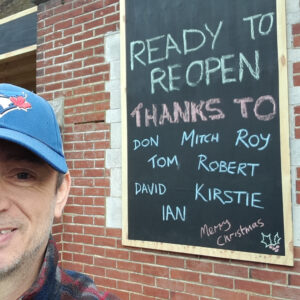 READY TO
REOPEN
THANKS TO
DON MITCH ROY
TOM ROBERT
DAVID KIRSTIE
IAN
Merry
Christmas